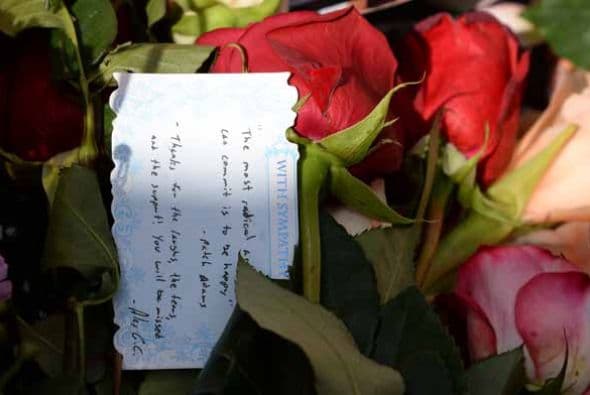 WITH SYMPATHY
"The most radical
can commit is to be happy"
- Patch Adams
- Thanks for the laughs, the tears,
and the support! You will be missed
- Alex G.C.